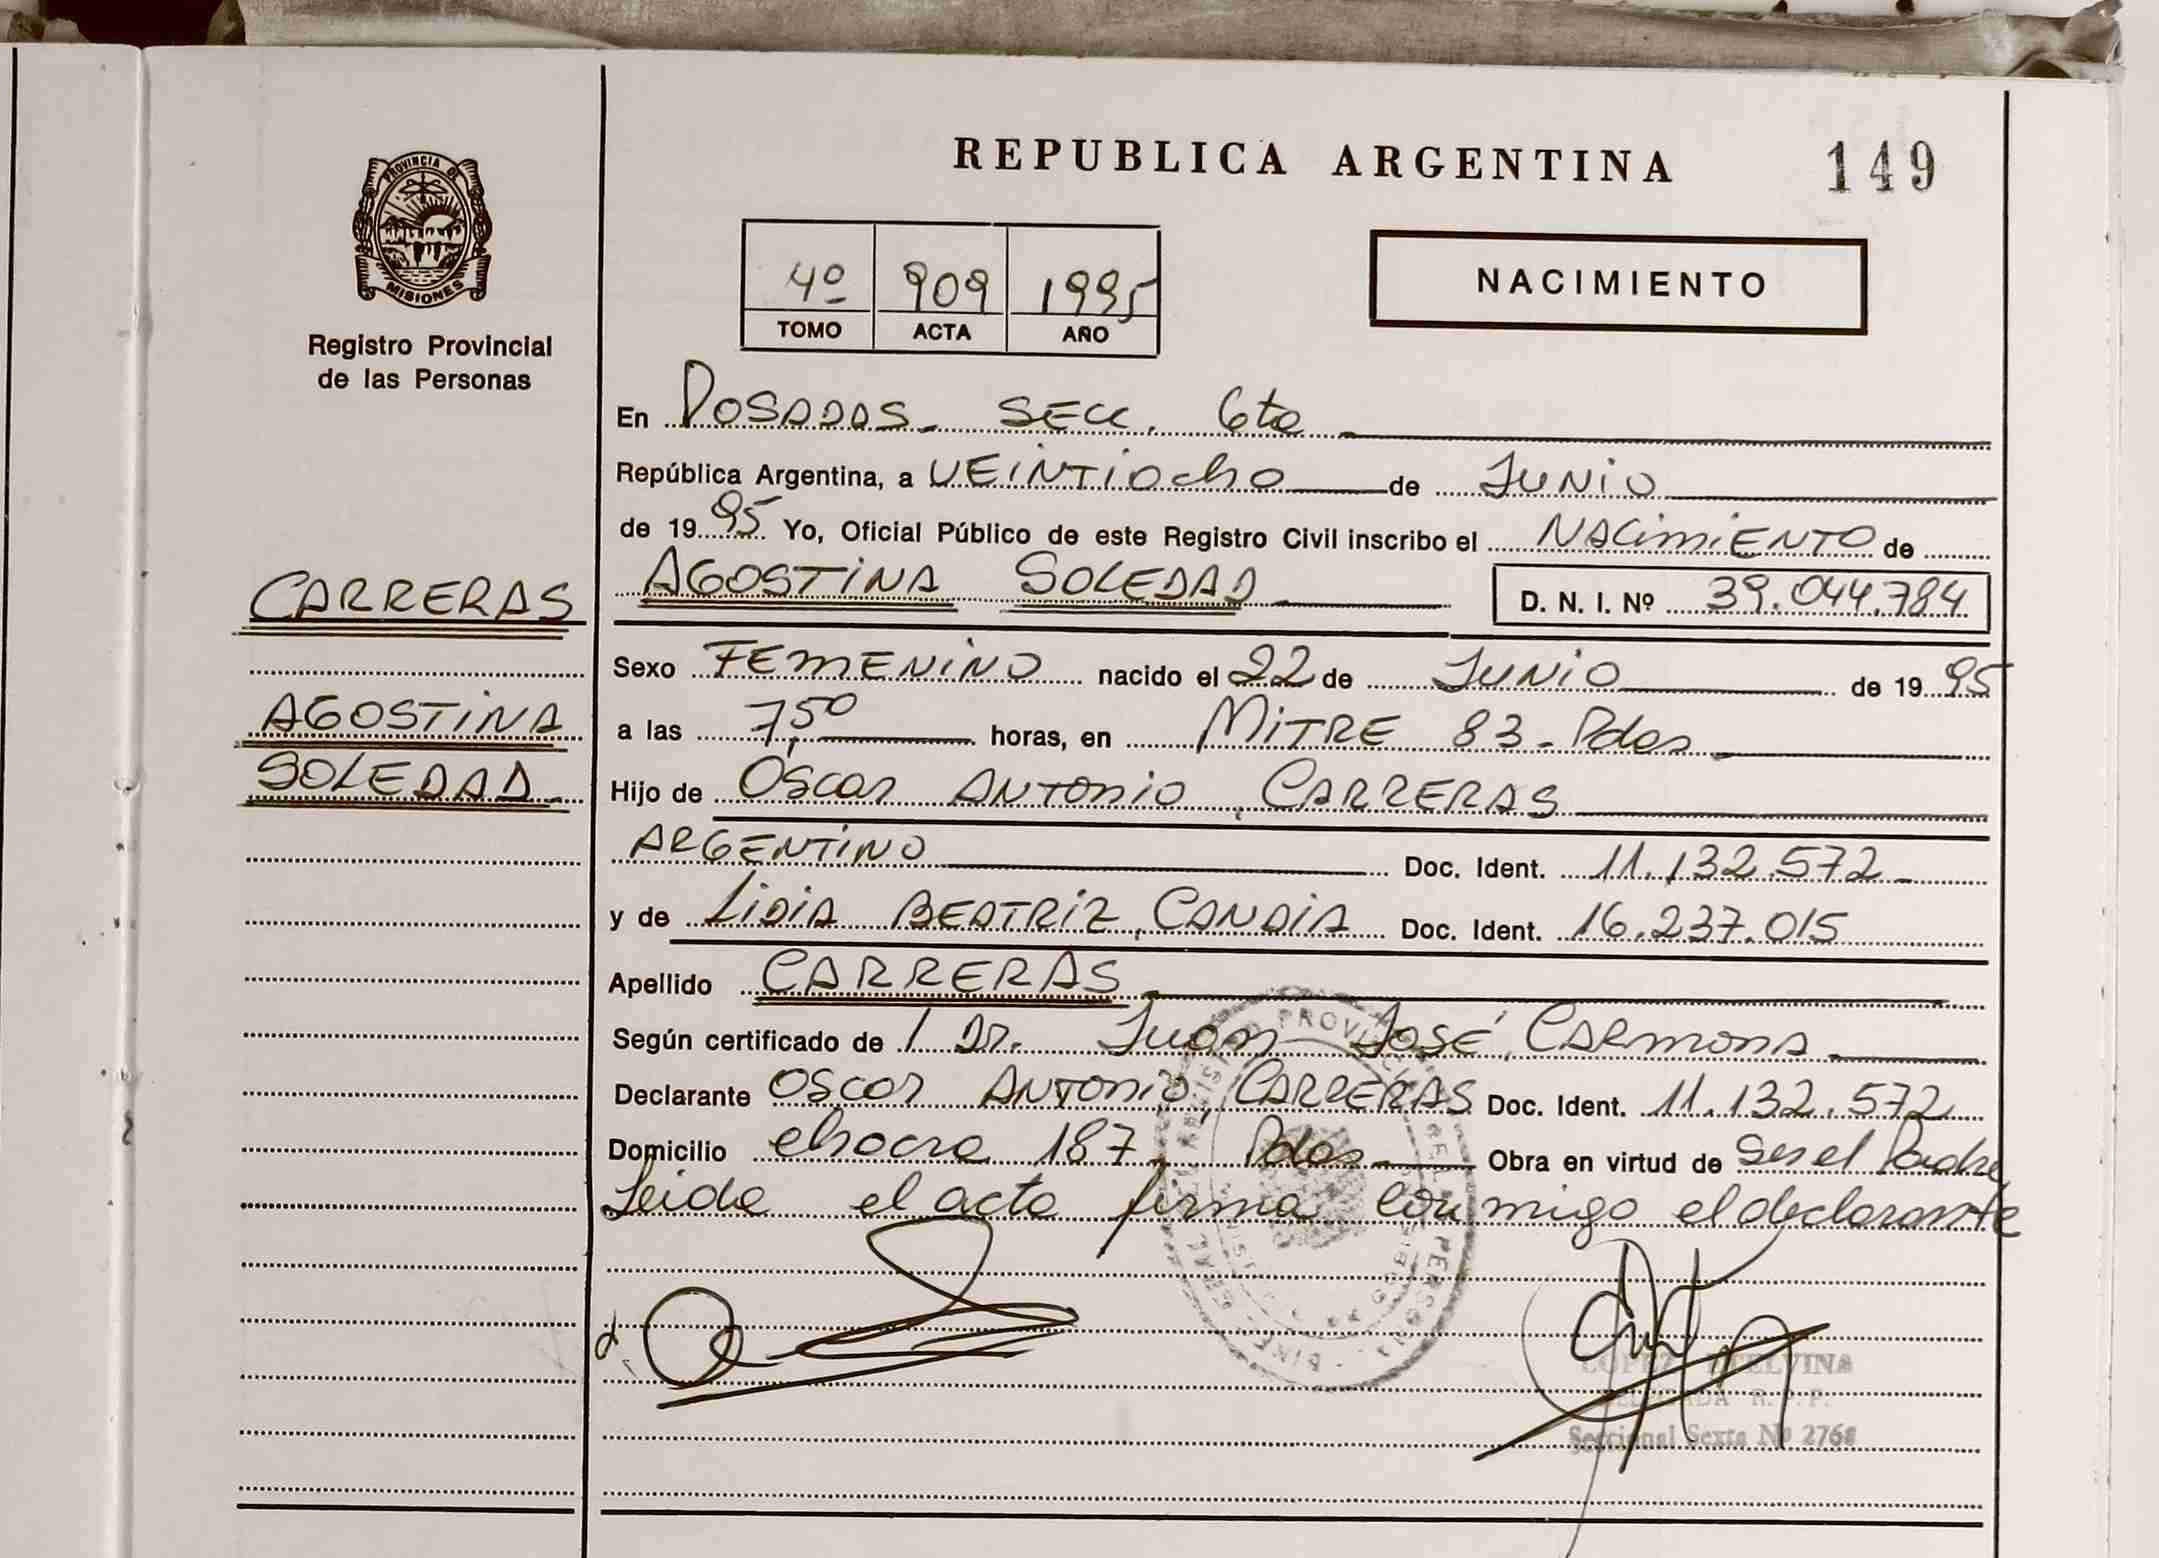 PROVINCIA DE
MISIONES
Registro Provincial
de las Personas
CARRERAS
AGOSTINA
SOLEDAD
REPUBLICA ARGENTINA
149
4º 909 1995
TOMO ACTA AÑO
NACIMIENTO
En POSADAS - SECC. 6ta
República Argentina, a VEINTIOCHO de JUNIO
de 1995 Yo, Oficial Público de este Registro Civil inscribo el NACIMIENTO de
AGOSTINA SOLEDAD D. N. I. Nº 39.044.784
Sexo FEMENINO nacido el 22 de JUNIO de 1995
a las 7,50 horas, en MITRE 83 - Pdas
Hijo de Oscar ANTONIO, CARRERAS
ARGENTINO Doc. Ident. 11.132.572
y de LIDIA BEATRIZ, CANDIA Doc. Ident. 16.237.015
Apellido CARRERAS
Según certificado de / Dr. Juan José, CARMONA
Declarante OSCAR ANTONIO, CARRERAS Doc. Ident. 11.132.572
Domicilio chacra 187 Pdas Obra en virtud de Ser el Padre
Leida el acta firma conmigo el declarante
LOPEZ
R. P. P.
Seccional Sexta Nº 2768